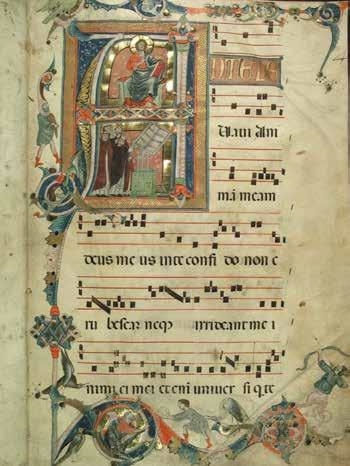 AD TE LE
uaui ani
mā meam
deus me us in te confi do non e
ru bescar neqʒ irrideant me i
nimi ci mei et enī uniuer si q te